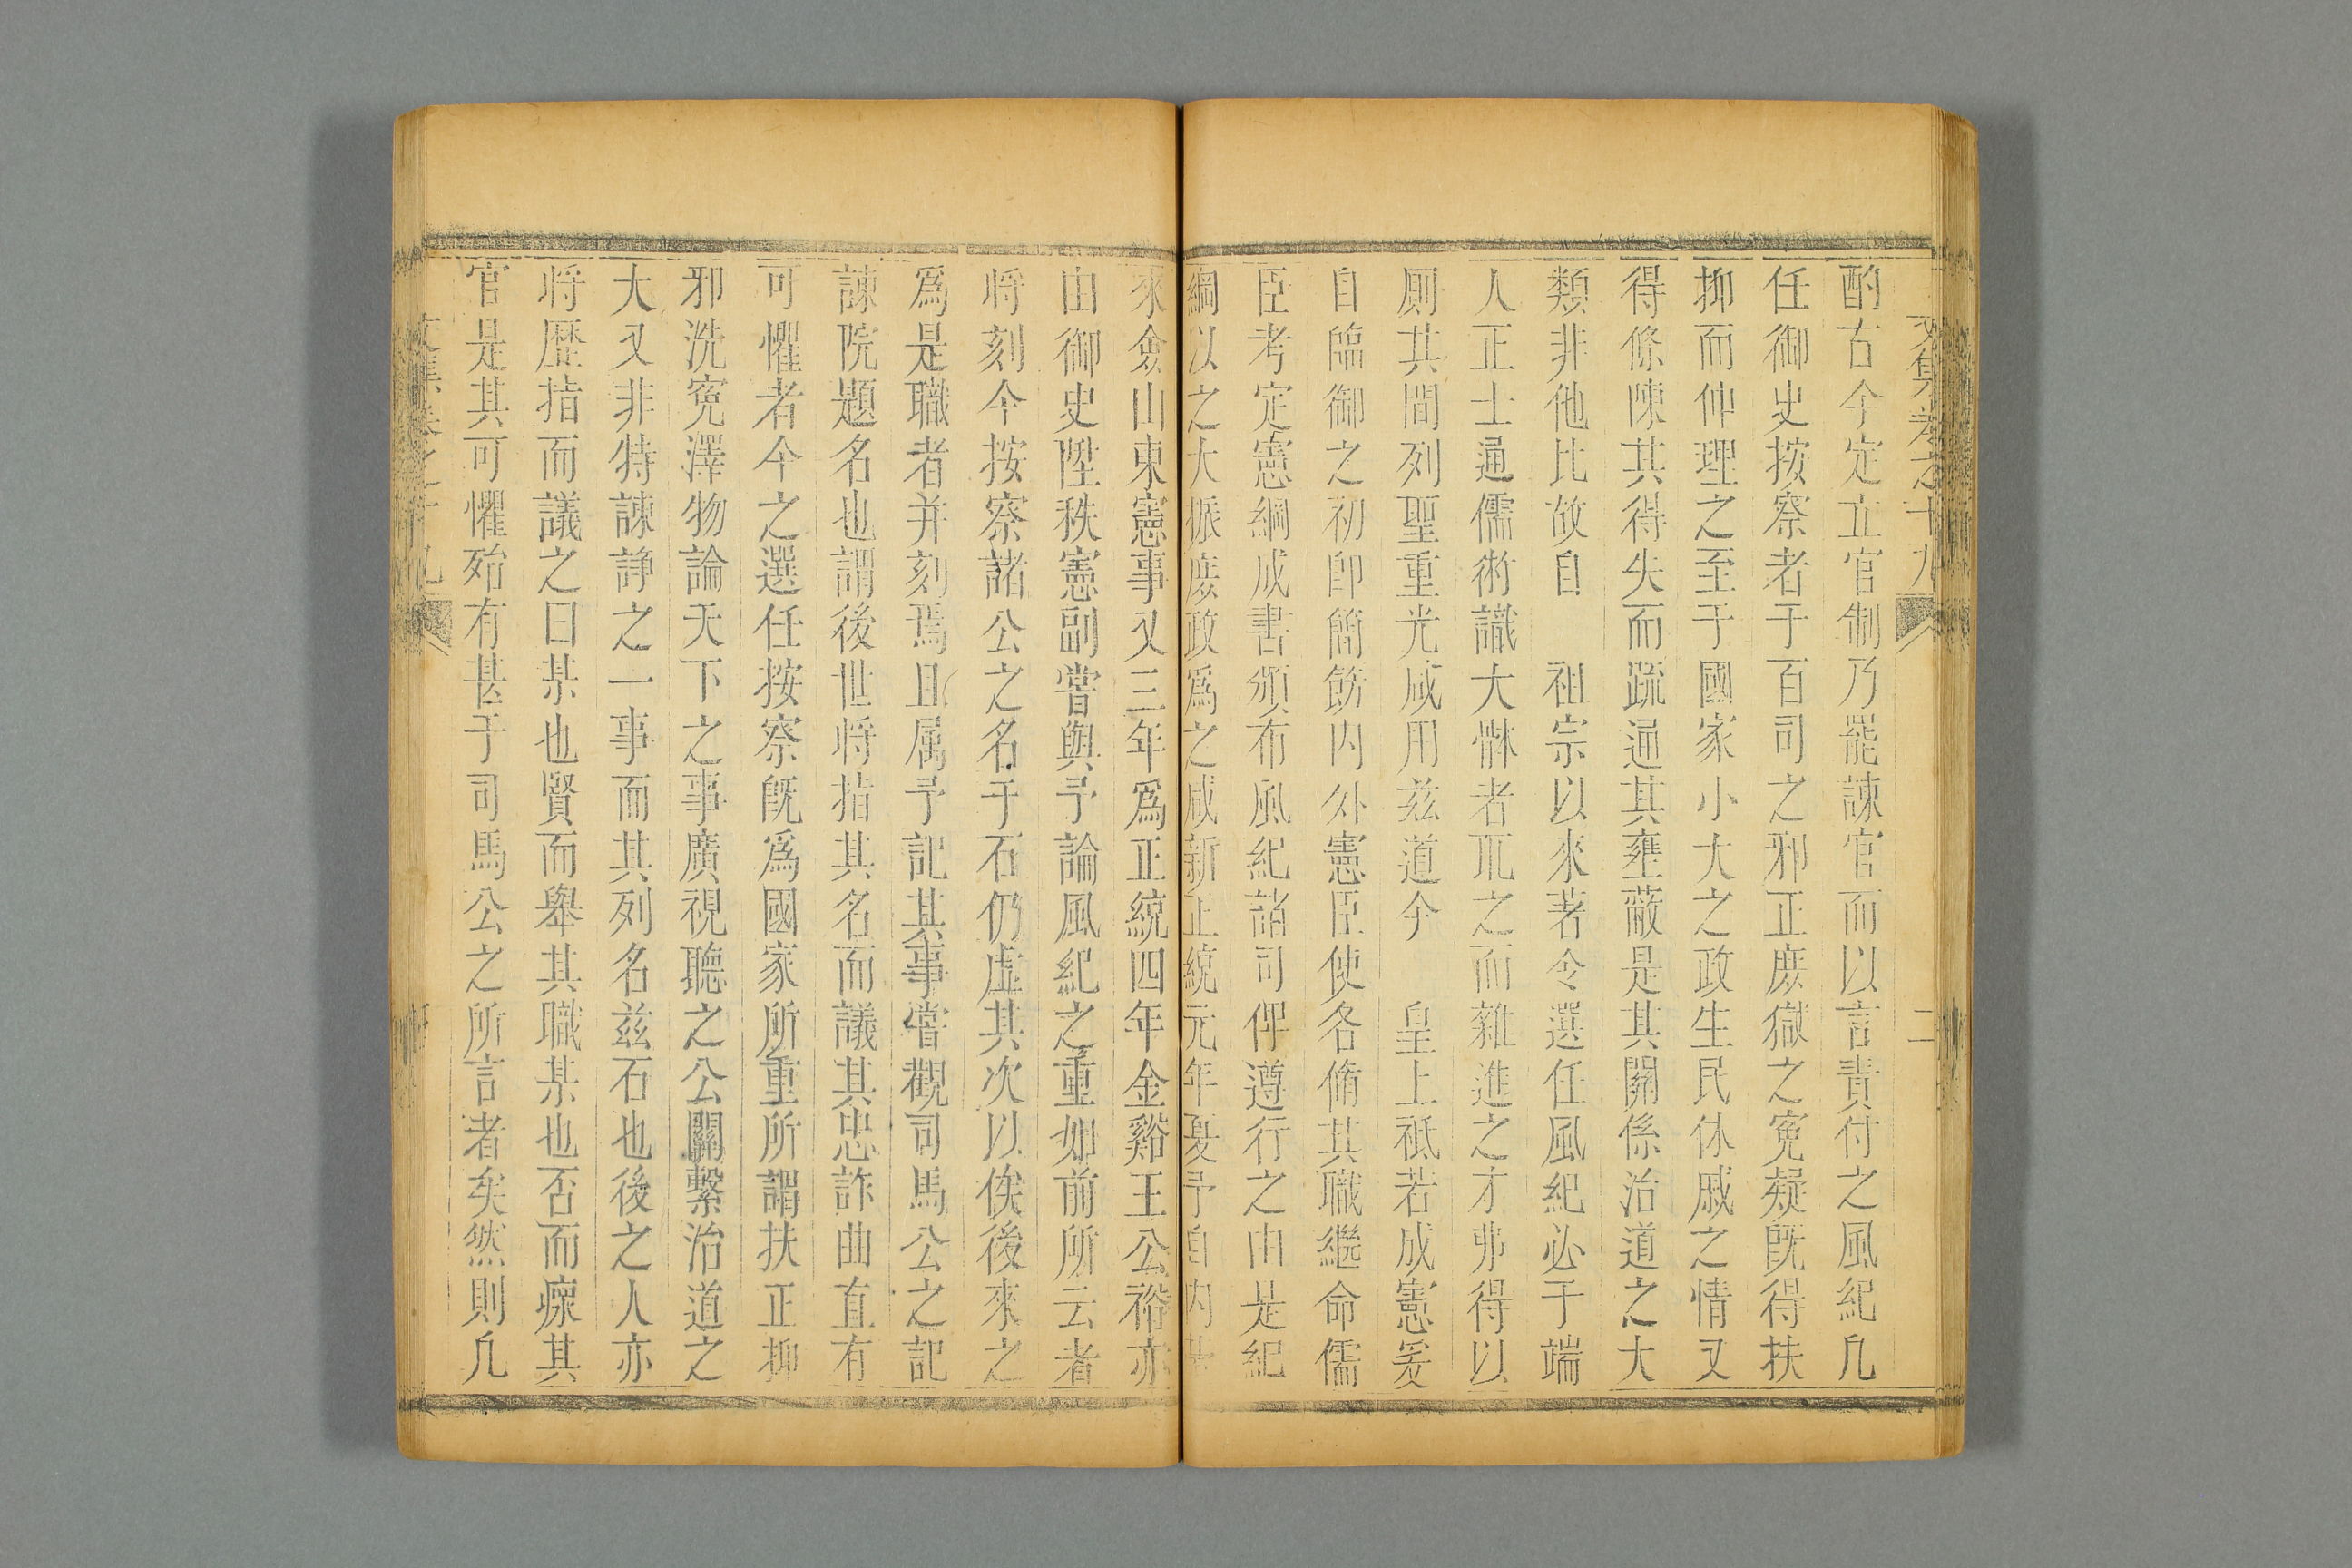 文集卷之十九　二
酌古今定立官制乃罷諫官而以言責付之風紀凡
任御史按察者于百司之邪正庶獄之寃疑旣得扶
抑而伸理之至于國家小大之政生民休戚之情又
得條陳其得失而疏通其壅蔽是其關係治道之大
類非他比故自　祖宗以來著令選任風紀必于端
人正士通儒術識大體者爲之而雜進之才弗得以
厠其間列聖重光咸用茲道今　皇上祗若成憲爰
自臨御之初卽簡飭内外憲臣使各脩其職繼命儒
臣考定憲綱成書頒布風紀諸司俾遵行之由是紀
綱以之大振庶政爲之咸新正統元年夏予自内
來僉山東憲事又三年爲正統四年金谿王公裕亦
由御史陞秩憲副嘗與予論風紀之重如前所云者
將刻今按察諸公之名于石仍虛其次以俟後來之
爲是職者并刻焉且属予記其事嘗觀司馬公之記
諫院題名也謂後世將指其名而議其忠詐曲直有
可懼者今之選任按察旣爲國家所重所謂扶正抑
邪洗寃澤物論天下之事廣視聽之公關繫治道之
大又非特諫諍之一事而其列名茲石也後之人亦
將歷指而議之曰某也賢而舉其職某也否而瘝其
官是其可懼殆有甚于司馬公之所言者矣然則凡
文集卷之十九